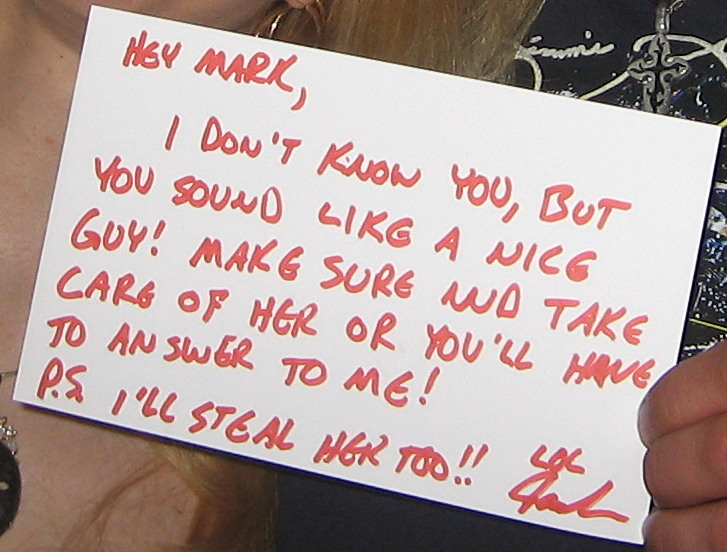 HEY MARK,
I DON'T KNOW YOU, BUT
YOU SOUND LIKE A NICE
GUY! MAKE SURE AND TAKE
CARE OF HER OR YOU'LL HAVE
TO ANSWER TO ME!
P.S. I'LL STEAL HER TOO!!
LOL